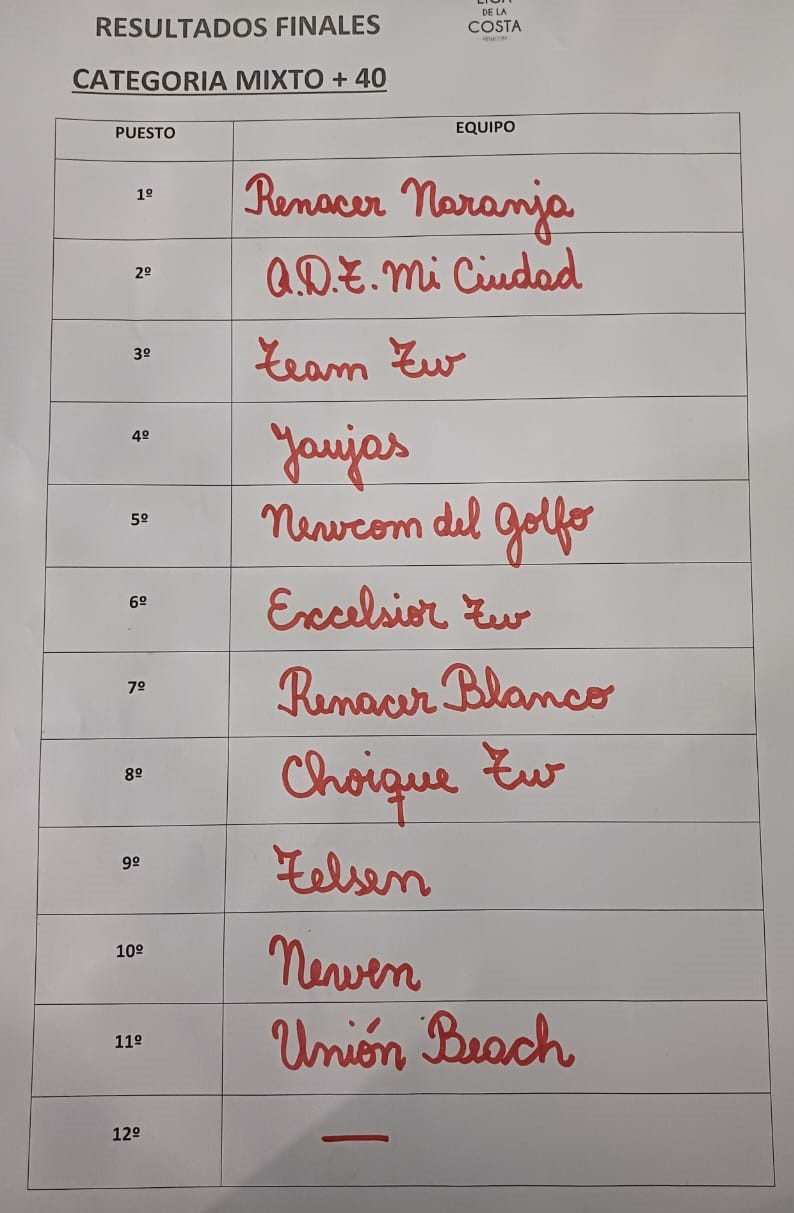 RESULTADOS FINALES
DE LA
COSTA
CATEGORIA MIXTO + 40
PUESTO EQUIPO
1º Renacer Naranja
2º A.D.T. Mi Ciudad
3º Team TW
4º Yaujas
5º Newcom del Golfo
6º Excelsior TW
7º Renacer Blanco
8º Choique TW
9º Telsen
10º Newen
11º Unión Beach
12º —